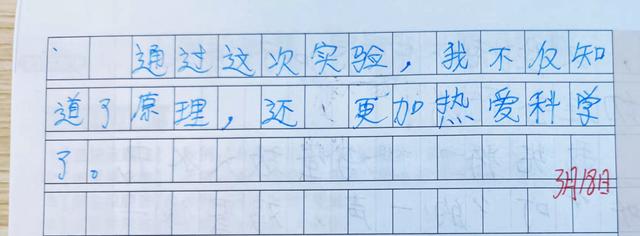 通过这次实验，我不仅知
道了原理，还 更加热爱科学
了。
3月18日